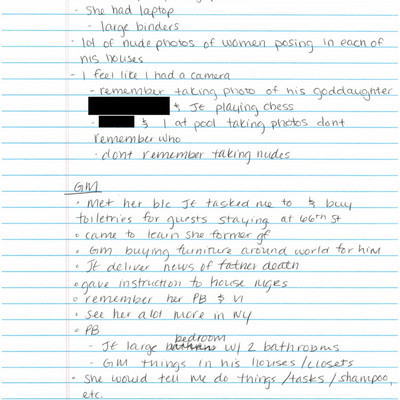 - She had laptop
- large binders
- lot of nude photos of women posing in each of
his houses
- I feel like I had a camera
- remember taking photo of his goddaughter
& JE playing chess
- & I at pool taking photos dont
remember who
- dont remember taking nudes
GM
• Met her b/c JE tasked me to & buy
toiletries for guests staying at 66th St
• came to learn she former gf
• GM buying furniture around world for him
• JE deliver news of father death
• gave instruction to house
• remember her PB & VI
• see her alot more in NY
• PB
bedroom
- JE large w/ 2 bathrooms
- GM things in his houses/closets
• She would tell me do things/tasks/shampoo,
etc.